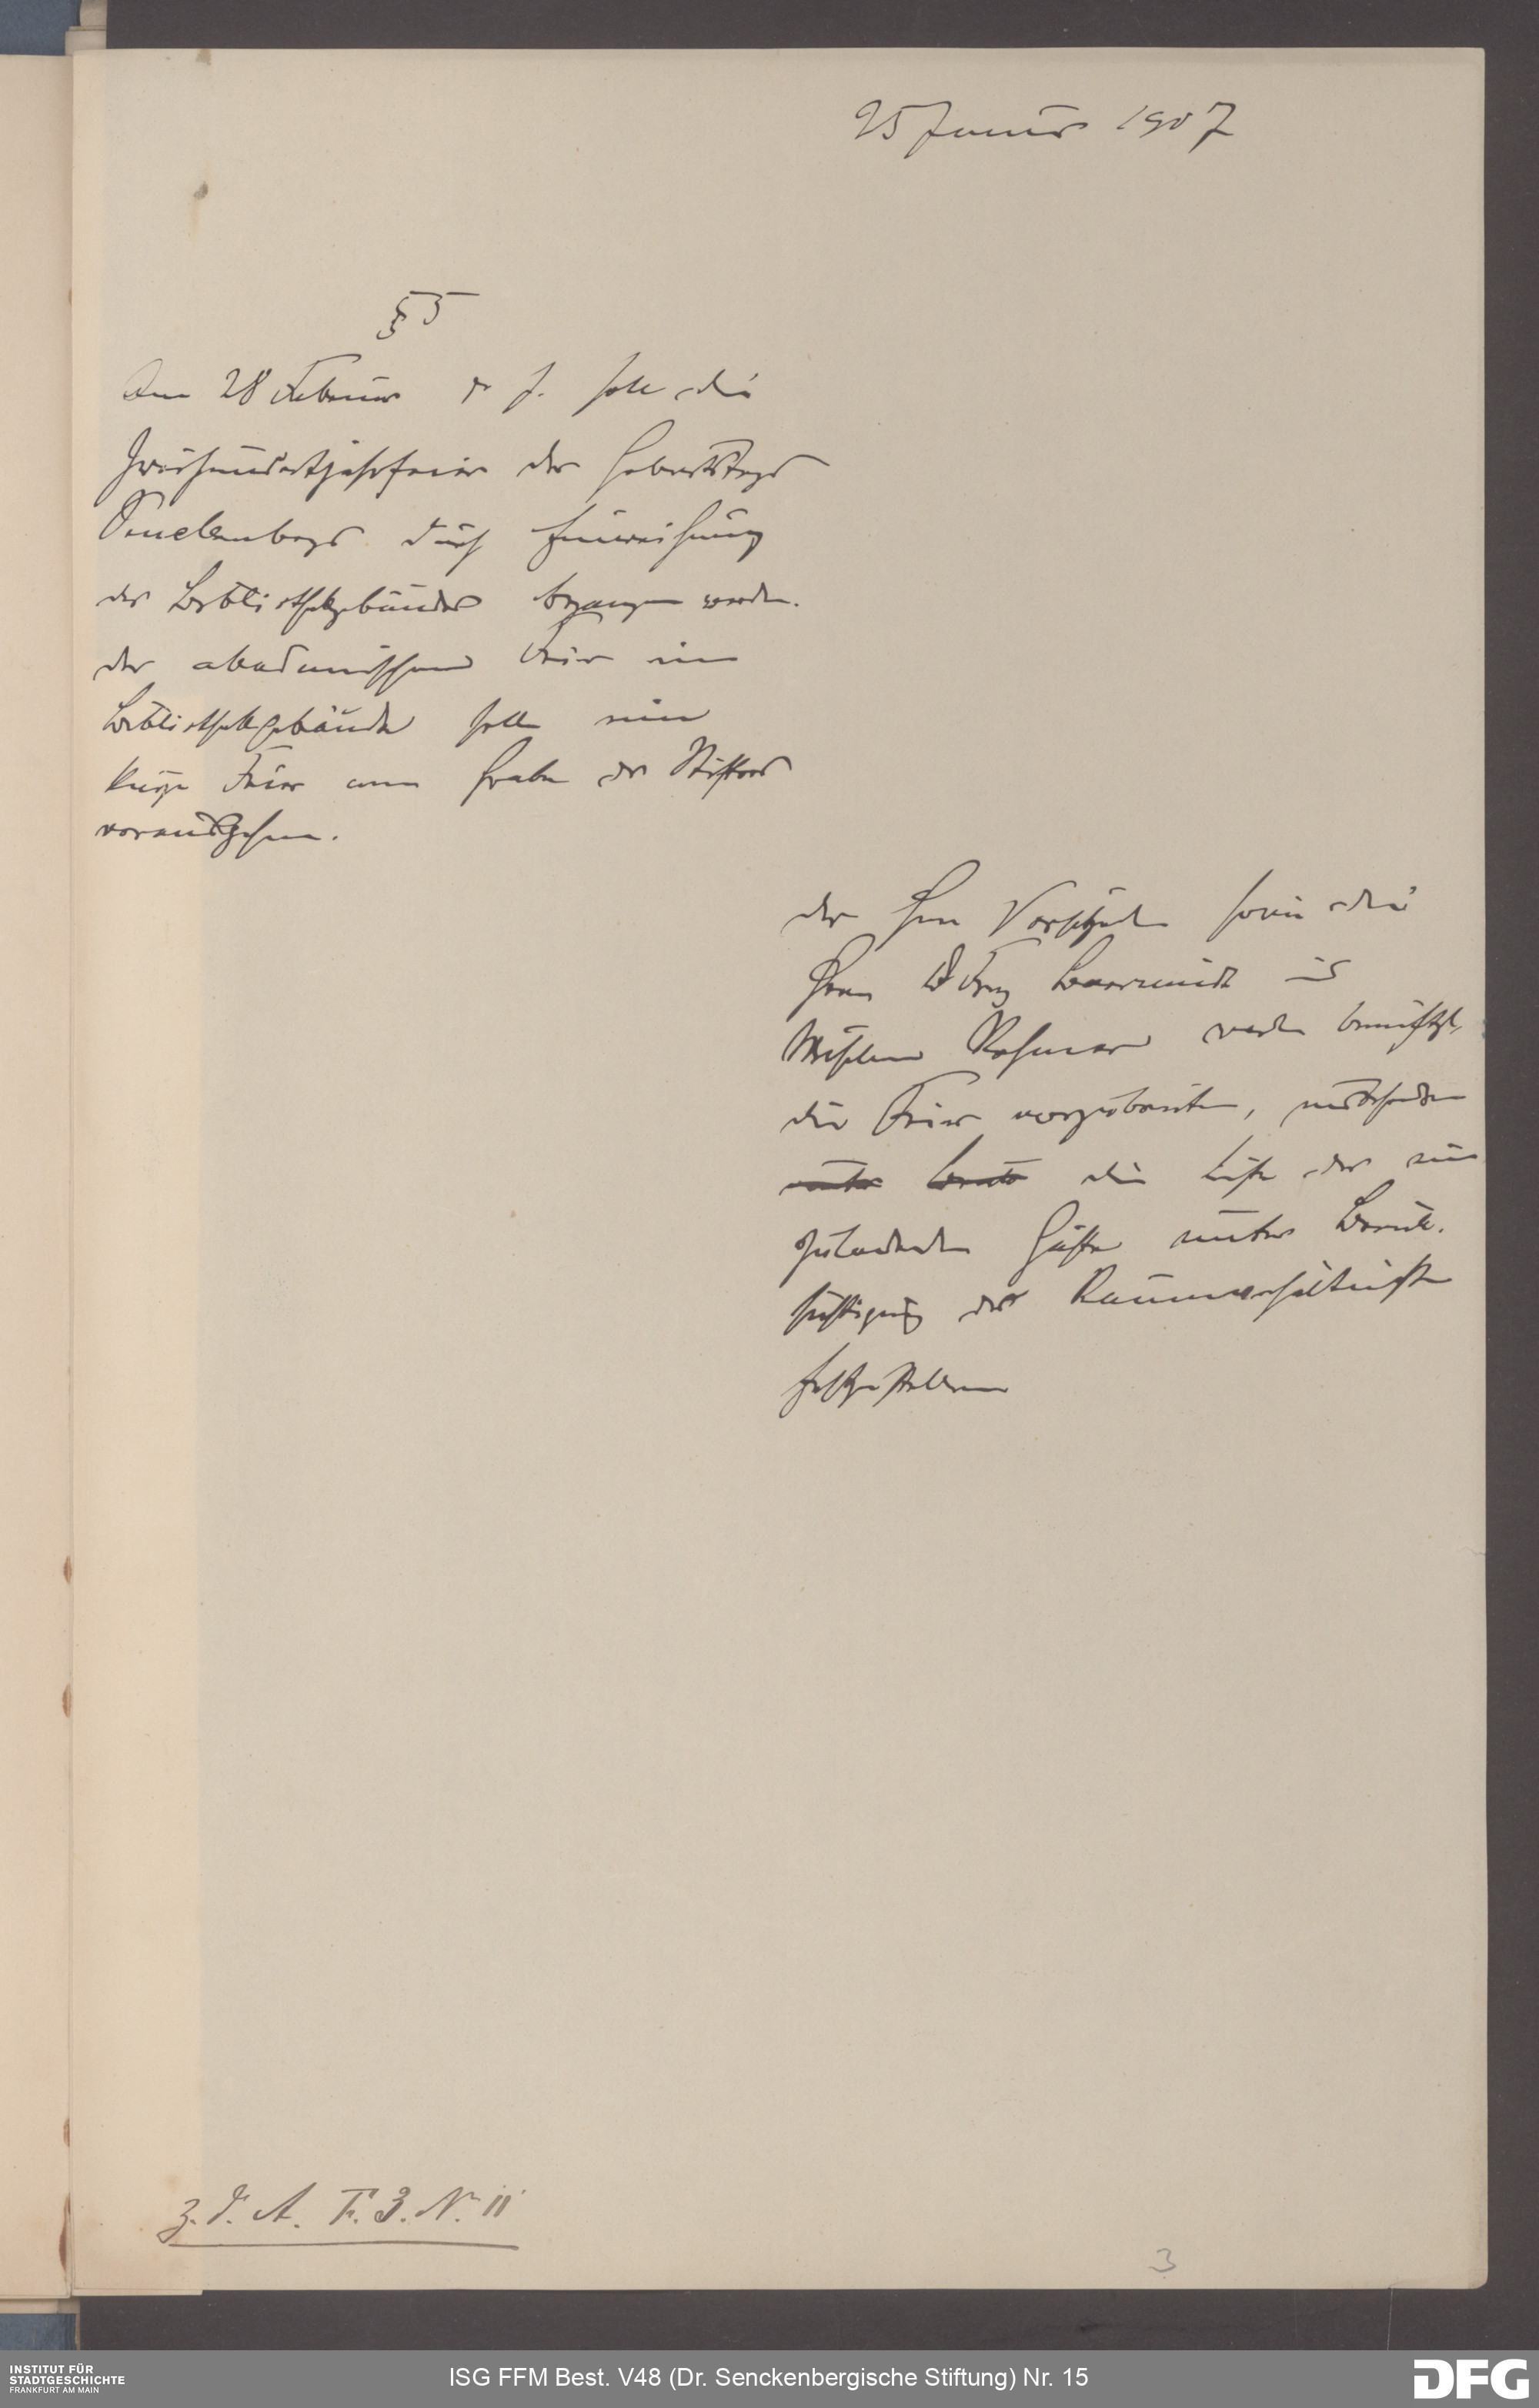 25 Januar 1907
§ 5
Am 28 Februar d. J. soll die
Zweihundertjahrfeier des Geburtstags
Senckenbergs durch Einweihung
des Bibliothekgebäudes begangen werden.
Der akademischen Feier im
Bibliothekgebäude soll eine
kurze Feier am Grabe des Stifters
vorausgehen.
Der Herr Vorsitzende sowie die
Herrn
werden beauftragt,
die Feier vorzubereiten,
unter die Liste der ein
zuladenden Gäste unter Berück.
sichtigung der Raumverhältnisse
festzustellen
z. d. A. F. 3. N. 11
3
INSTITUT FÜR
STADTGESCHICHTE
FRANKFURT AM MAIN
ISG FFM Best. V48 (Dr. Senckenbergische Stiftung) Nr. 15
DFG